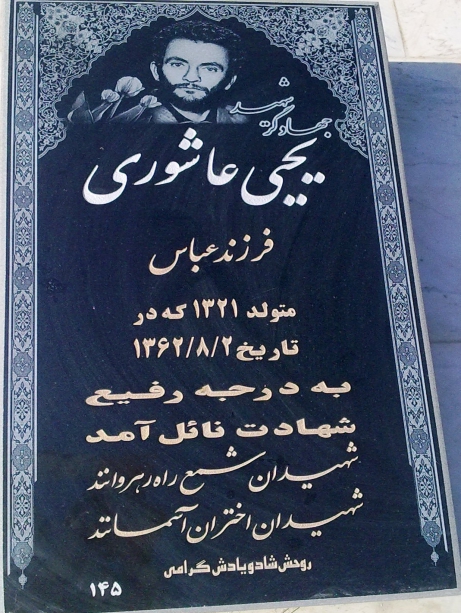 شهید
جهادگر
یحیی عاشوری
فرزند عباس
متولد ۱۳۲۱ که در
تاریخ ۱۳۶۲/۸/۲
به درجه رفیع
شهادت نائل آمد
شهیدان شمع راه رهروانند
شهیدان اختران آسمانند
روحش شاد و یادش گرامی
۱۴۵